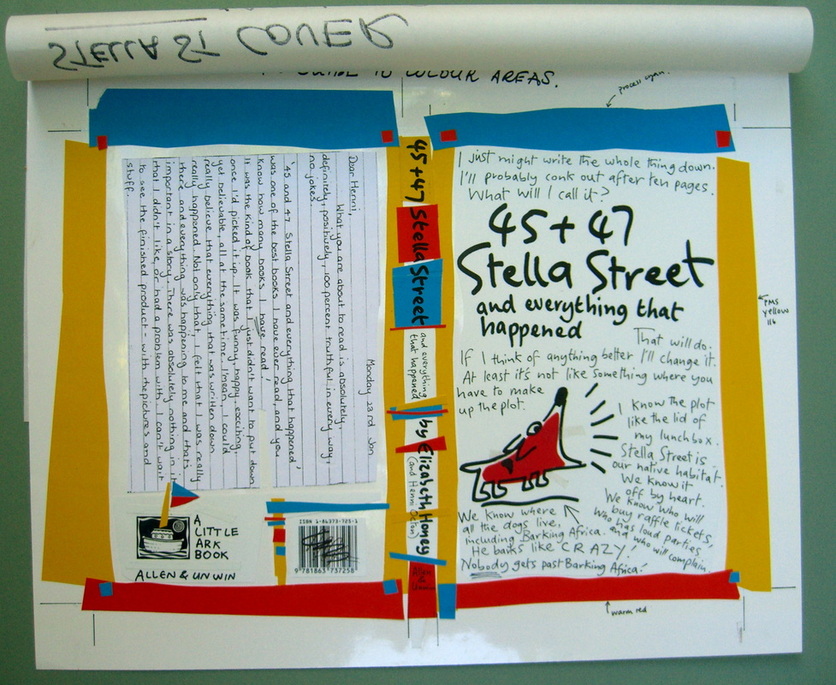 STELLA ST COVER
GUIDE TO COLOUR AREAS.
process cyan
I just might write the whole thing down.
I'll probably conk out after ten pages.
What will I call it?
45 + 47
Stella Street
and everything that
happened
That will do.
If I think of anything better I'll change it.
At least it's not like something where you
have to make
up the plot.
I know the plot
like the lid of
my lunch box.
Stella Street is
our native habitat.
We know it
off by heart.
We know who will
buy raffle tickets,
who has loud parties
and who will complain
We know where
all the dogs live,
including Barking Africa.
He barks like CRAZY!
Nobody gets past Barking Africa!
PMS
yellow
116
warm red
45+47 Stella Street
and everything
that happened
by Elizabeth Honey
(and Henni Octon)
Allen
&
Unwin
Monday 23rd Jan
Dear Henni,
What you are about to read is absolutely,
definitely, positively, 100 percent truthful in every way,
no jokes.
'45 and 47 Stella Street and everything that happened'
was one of the best books I have ever read, and you
know how many books I have read!
It was the kind of book that I just didn't want to put down
once I'd picked it up. It was funny, happy, exciting,
yet believable, all at the same time. I mean, I could
really believe that everything that was written down
really happened. Not only that, I felt that I was really
there and everything was happening to me and that's
important in a story. There was absolutely nothing in it
that I didn't like or had a problem with. I can't wait
to see the finished product - with the pictures and
stuff.
A
LITTLE
ARK
BOOK
ALLEN & UNWIN
ISBN 1-86373-725-1
9 781863 737258